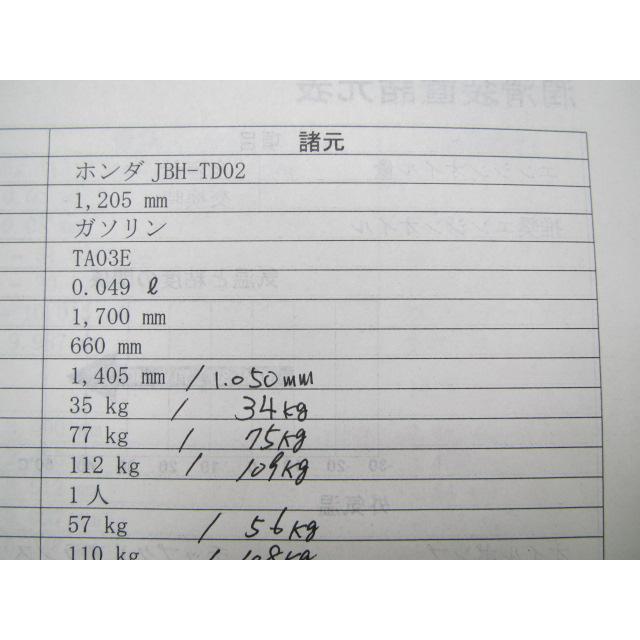 諸元
ホンダ JBH-TD02
1,205 mm
ガソリン
TA03E
0.049 ℓ
1,700 mm
660 mm
1,405 mm / 1.050mm
35 kg / 34kg
77 kg / 75kg
112 kg / 109kg
1人
57 kg / 56kg
110 kg / 108kg